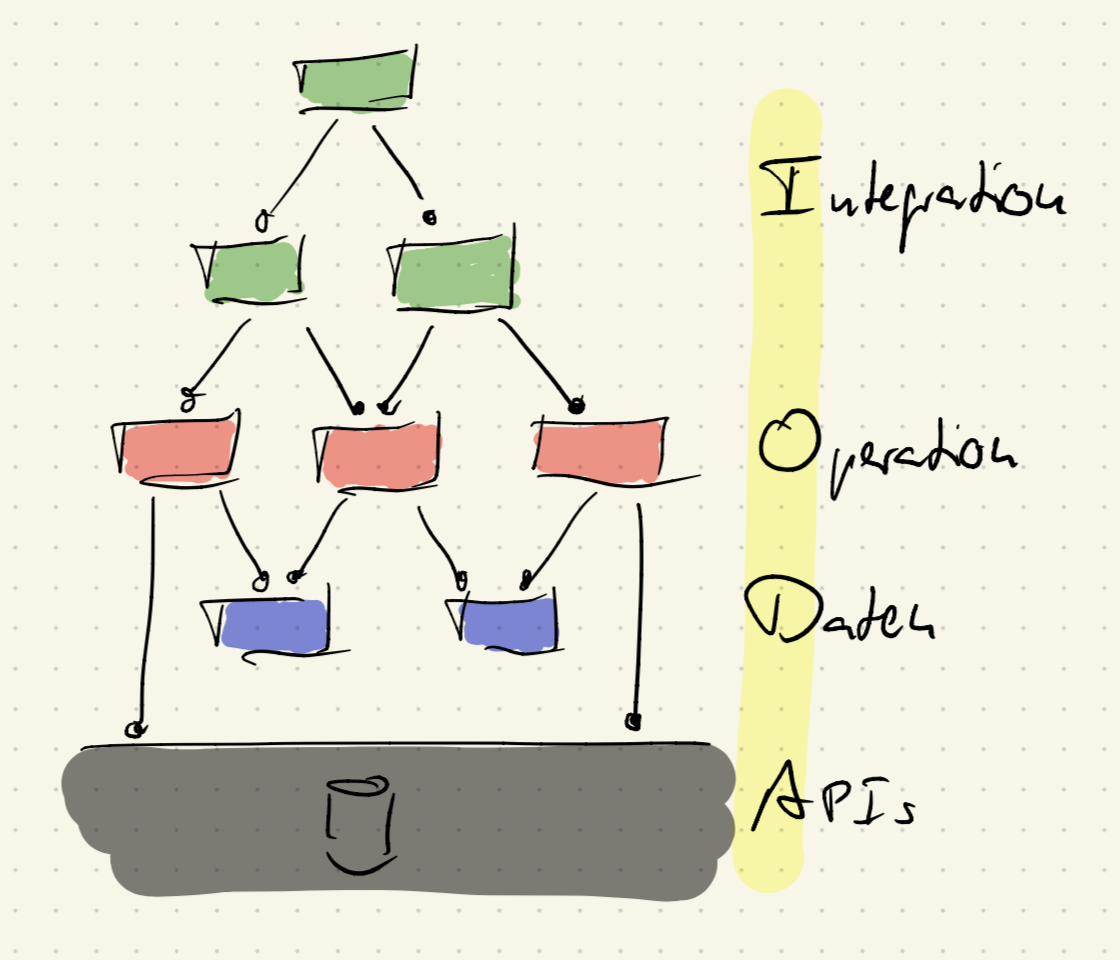 Integration
Operation
Daten
APIs